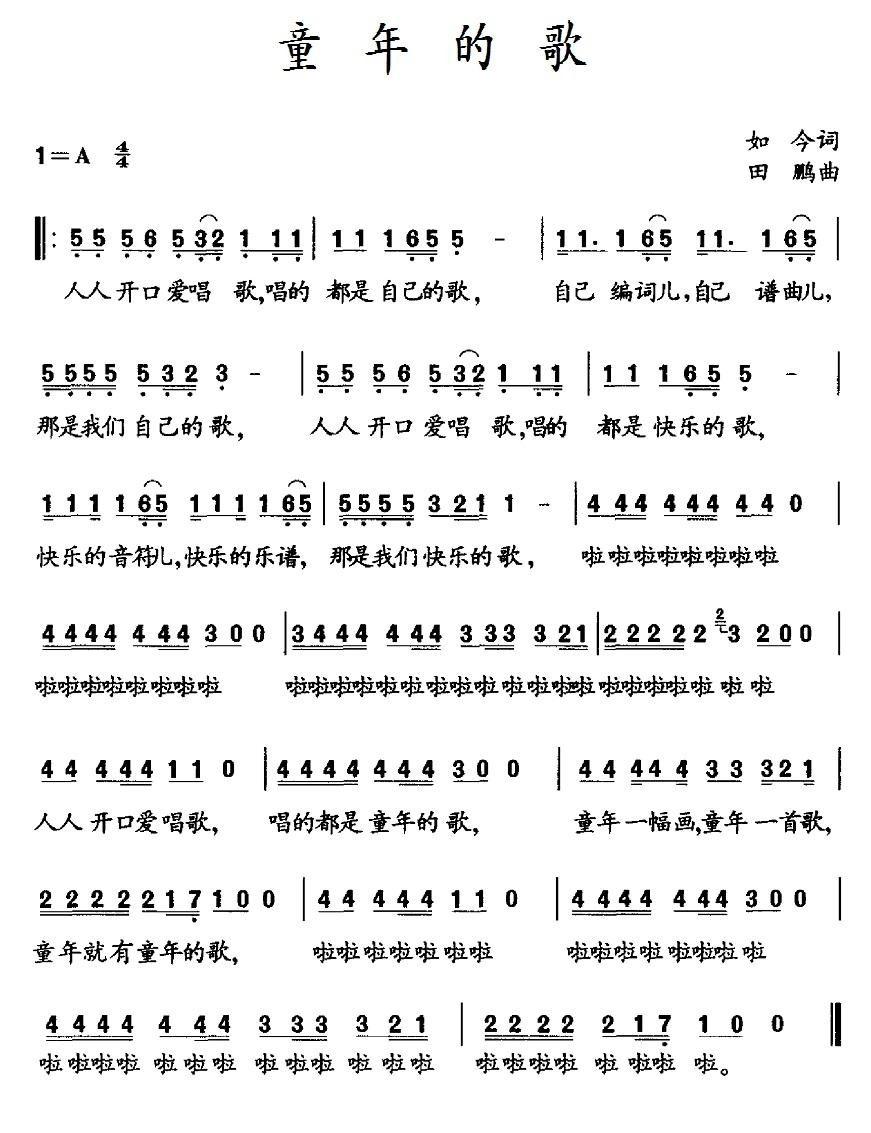 童 年 的 歌
如 今词
1=A 4/4
田 鹏曲
5 5 5 6 5 3 2 1 1 1 | 1 1 1 6 5 5 - | 1 1. 1 6 5 1 1. 1 6 5 |
人人开口爱唱 歌,唱的 都是自己的歌， 自己 编词儿,自己 谱曲儿，
5 5 5 5 5 3 2 3 - | 5 5 5 6 5 3 2 1 1 1 | 1 1 1 6 5 5 - |
那是我们自己的歌， 人人开口爱唱 歌,唱的 都是快乐的歌，
1 1 1 1 6 5 1 1 1 1 6 5 | 5 5 5 5 3 2 1 1 - | 4 4 4 4 4 4 4 4 0 |
快乐的音符儿,快乐的乐谱， 那是我们快乐的歌， 啦啦啦啦啦啦啦啦
4 4 4 4 4 4 4 3 0 0 | 3 4 4 4 4 4 4 3 3 3 3 2 1 | 2 2 2 2 2 2 3 2 0 0 |
啦啦啦啦啦啦啦啦 啦啦啦啦啦啦啦啦啦啦啦啦啦 啦啦啦啦啦 啦 啦
4 4 4 4 4 1 1 0 | 4 4 4 4 4 4 4 3 0 0 | 4 4 4 4 4 3 3 3 2 1 |
人人开口爱唱歌， 唱的都是童年的歌， 童年一幅画,童年一首歌，
2 2 2 2 2 1 7 1 0 0 | 4 4 4 4 4 1 1 0 | 4 4 4 4 4 4 4 3 0 0 |
童年就有童年的歌， 啦啦啦啦啦啦啦 啦啦啦啦啦啦啦啦
4 4 4 4 4 4 4 3 3 3 3 2 1 | 2 2 2 2 2 1 7 1 0 0
啦啦啦啦 啦啦啦 啦啦啦 啦啦啦 啦啦啦啦 啦 啦啦 啦。